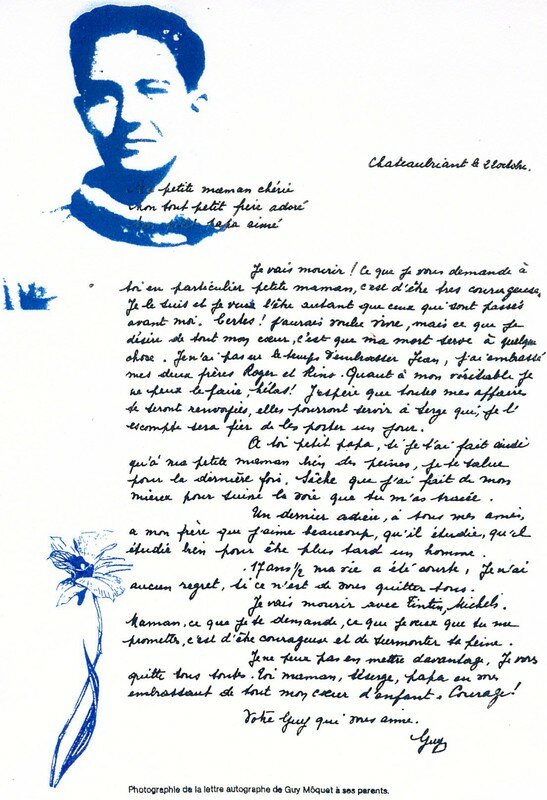 Chateaubriant le 22 octobre.
Ma petite maman chérie
mon tout petit frère adoré
mon petit papa aimé
Je vais mourir ! Ce que je vous demande à
toi en particulier petite maman, c'est d'être très courageuse,
Je le suis et je veux l'être autant que ceux qui sont passés
avant moi. Certes ! j'aurais voulu vivre, mais ce que je
désire de tout mon cœur, c'est que ma mort serve à quelque
chose. Je n'ai pas eu le temps d'embrasser Jean, j'ai embrassé
mes deux frères Roger et Rino. Quant à mon véritable je
ne peux le faire, hélas ! J'espère que toutes mes affaires
te seront renvoyées, elles pourront servir à Serge qui, je l'
escompte sera fier de les porter un jour.
A toi petit papa, si je t'ai fait ainsi
qu'à ma petite maman bien des peines, je te salue
pour la dernière fois. Sache que j'ai fait de mon
mieux pour suivre la voie que tu m'as tracée.
Un dernier adieu, à tous mes amis,
a mon frère que j'aime beaucoup, qu'il étudie, qu'il
étudie bien pour être plus tard un homme.
17 ans ½ ma vie a été courte, je n'ai
aucun regret, si ce n'est de vous quitter tous.
Je vais mourir avec Tintin, Michels.
Maman, ce que je te demande, ce que je veux que tu me
promettes, c'est d'être courageuse et de surmonter ta peine.
Je ne peux pas en mettre davantage. Je vous
quitte tous toutes. toi maman, Serge, papa en vous
embrassant de tout mon cœur d'enfant. Courage !
Votre Guy qui vous aime.
Guy
Photographie de la lettre autographe de Guy Môquet à ses parents.